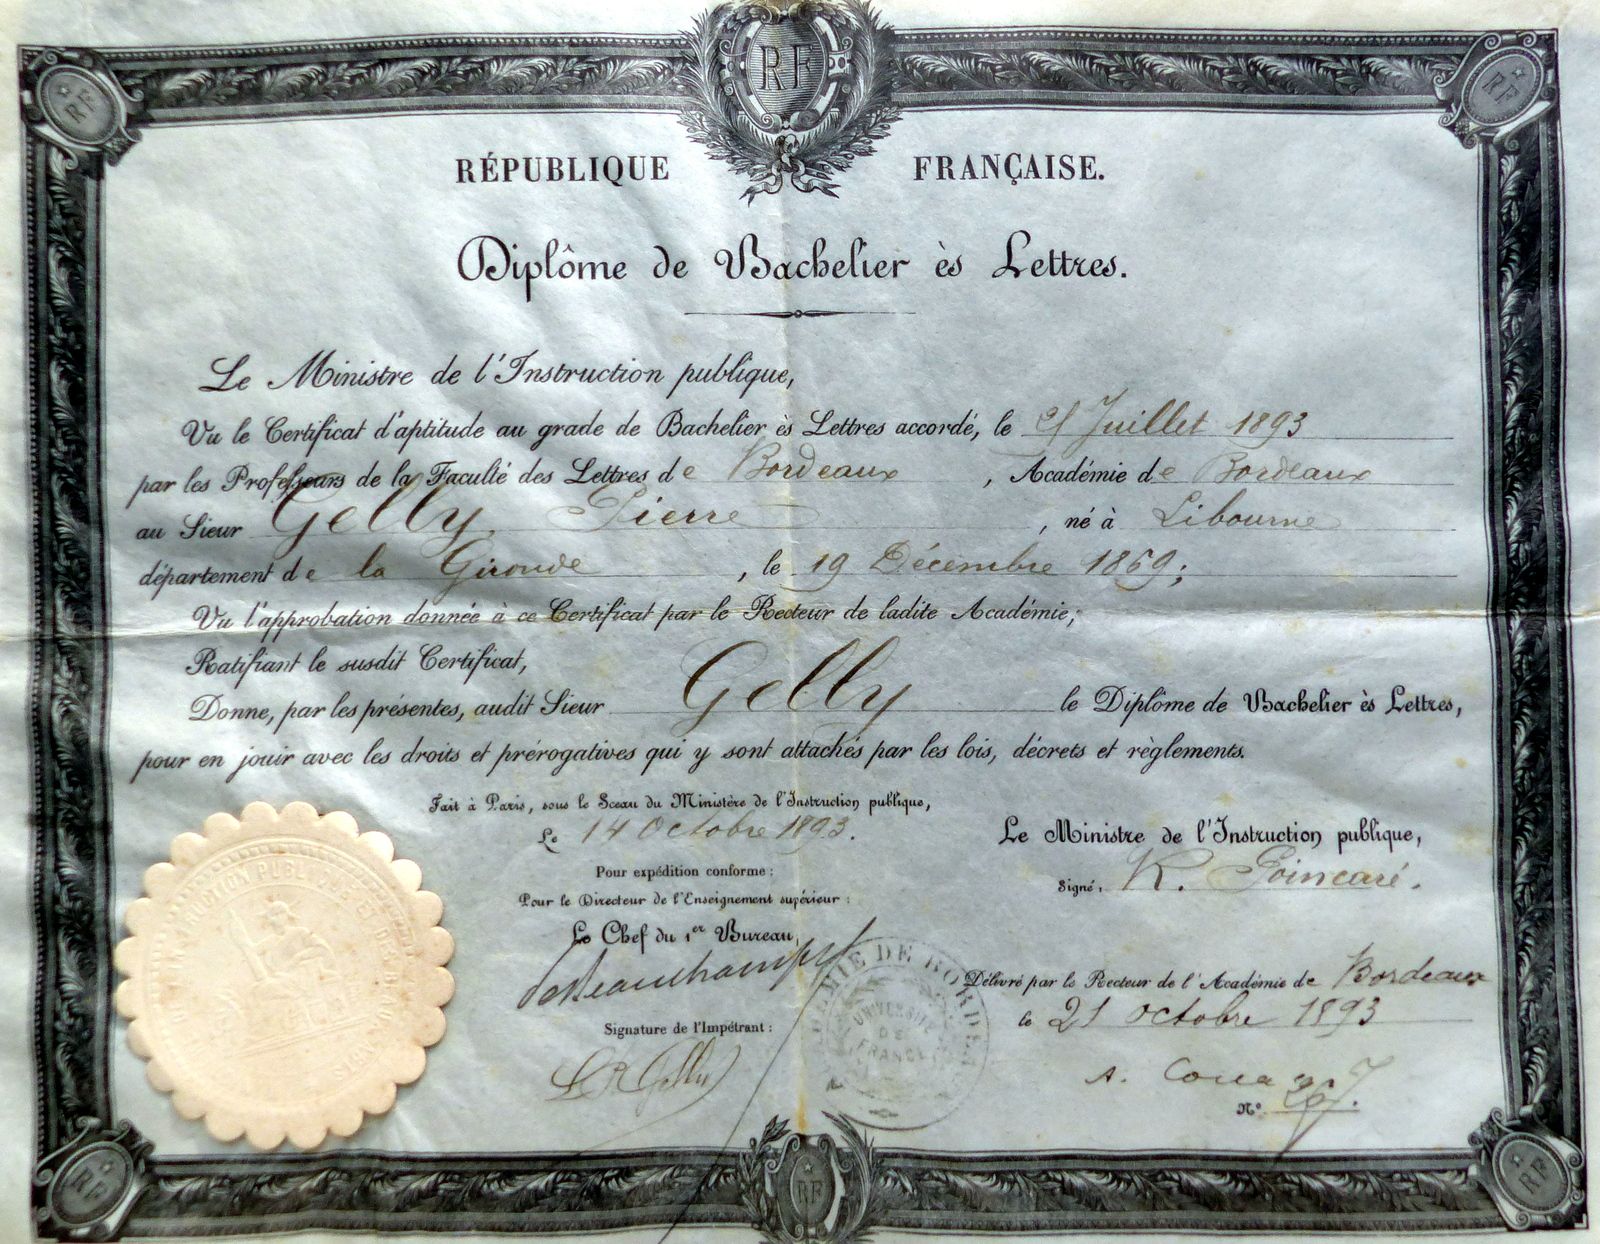 RF
RF
RF
RÉPUBLIQUE FRANÇAISE.
Diplôme de Bachelier ès Lettres.
Le Ministre de l'Instruction publique,
Vu le Certificat d'aptitude au grade de Bachelier ès Lettres accordé, le Juillet 1893
par les Professeurs de la Faculté des Lettres de Bordeaux, Académie de Bordeaux
au Sieur Gelly Pierre, né à Libourne
département de la Gironde, le 19 Décembre 1869;
Vu l'approbation donnée à ce Certificat par le Recteur de ladite Académie;
Ratifiant le susdit Certificat,
Donne, par les présentes, audit Sieur Gelly le Diplôme de Bachelier ès Lettres,
pour en jouir avec les droits et prérogatives qui y sont attachés par les lois, décrets et règlements.
Fait à Paris, sous le Sceau du Ministère de l'Instruction publique,
Le 14 Octobre 1893.
Le Ministre de l'Instruction publique,
Signé: R. Poincaré.
Pour expédition conforme:
Pour le Directeur de l'Enseignement supérieur:
Le Chef du 1er Bureau,
Délivré par le Recteur de l'Académie de Bordeaux
le 21 Octobre 1893
Signature de l'Impétrant:
Gelly
A. Couat
N° 267.
ACADÉMIE DE BORDEAUX
UNIVERSITÉ
DE
FRANCE
INSTRUCTION PUBLIQUE ET DES BEAUX ARTS
RF
RF
RF